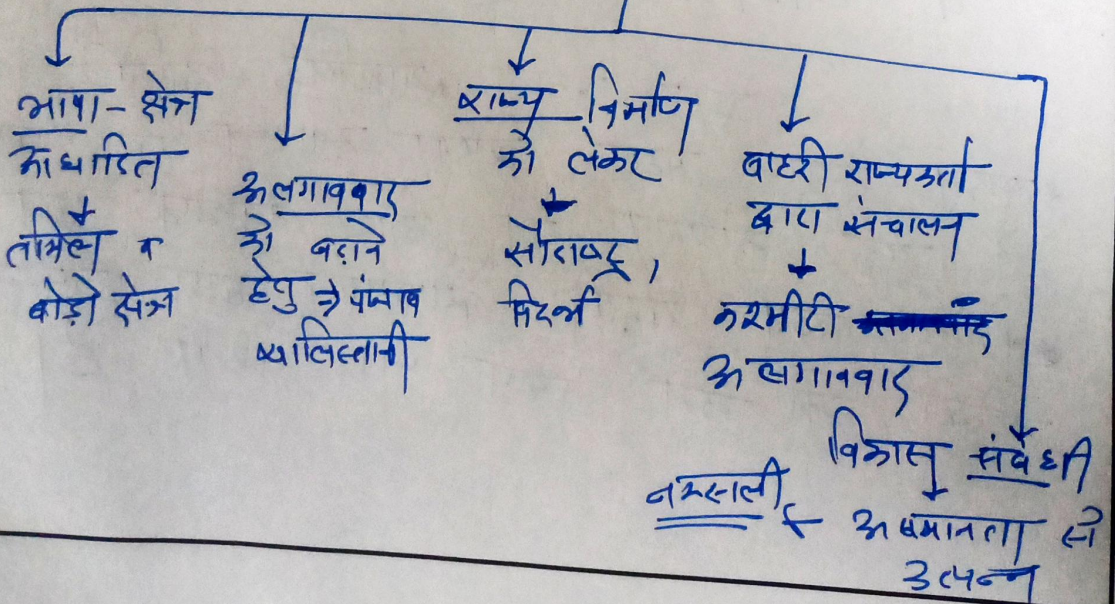 भाषा - क्षेत्र
आधारित
तमिल व
बोड़ो क्षेत्र
अलगाववाद
को बढ़ाने
हेतु → पंजाब
खालिस्तानी
राज्य निर्माण
को लेकर
सौराष्ट्र,
विदर्भ
बाहरी राज्यकर्ता
द्वारा संचालन
कश्मीरी
अलगाववाद
विकास संबंधी
असमानता से
उत्पन्न
नक्सली